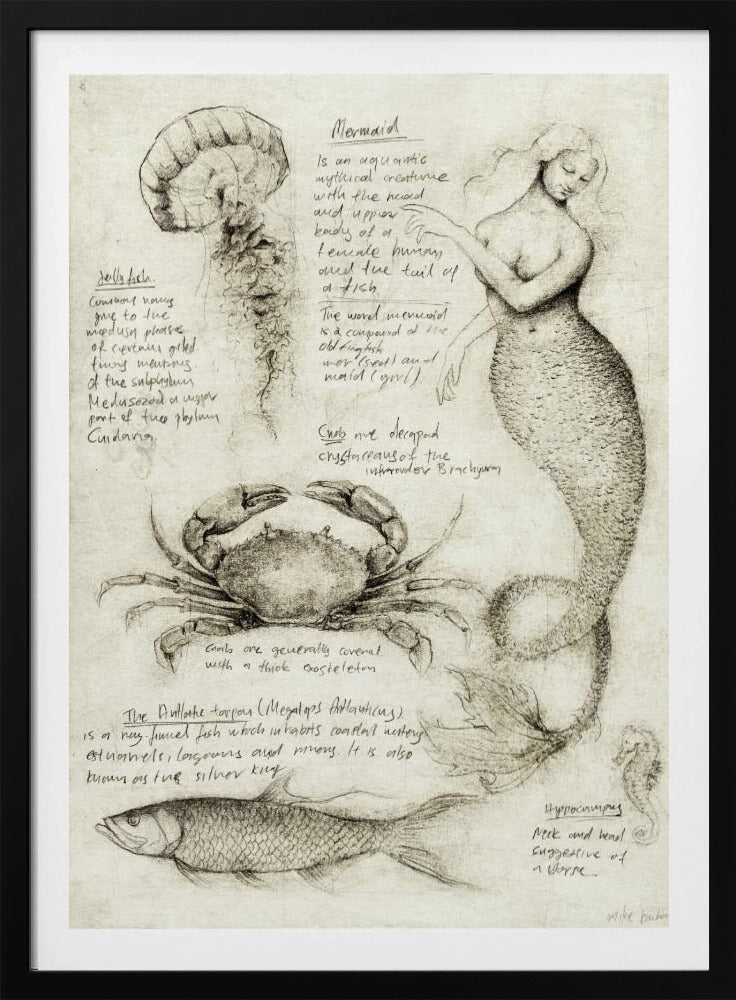 Mermaid
Is an aquantic
mythical creature
with the head
and upper
body of a
female human
and the tail of
a fish
The word mermaid
is a compound of the
old English
mer (sea) and
maid (girl)
Jellyfish
Common name
give to the
medusa phase
of certain
members
of the subphylum
Medusozoa a major
part of the phylum
Cnidaria
Crab are decapod
crystaceans of the
infraorder Brachyura
Crab are generally covered
with a thick exosteleton
The Atlantic tarpon (Megalops Atlanticus)
is a ray-finned fish which inhabits coastal waters
estuaries, lagoons and rivers. It is also
known as the silver king
Hippocampus
Neck and head
suggestive of
a Horse
Mike